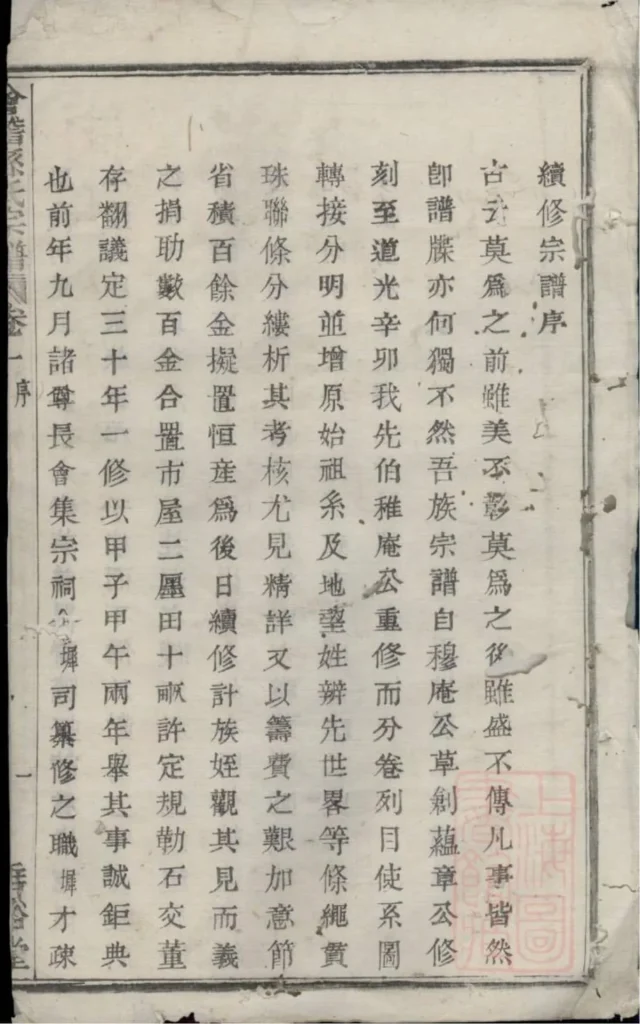 續修宗譜序
古云莫爲之前雖美不彰莫爲之後雖盛不傳凡事皆然
卽譜牒亦何獨不然吾族宗譜自穆庵公草創蘊章公修
刻至道光辛卯我先伯稚庵公重修而分卷列目使系圖
轉接分明並增原始祖系及地望姓辨先世畧等條繩貫
珠聯條分縷析其考核尤見精詳又以籌費之艱加意節
省積百餘金擬置恒產爲後日續修計族姪觀其見而義
之捐助數百金合置市屋二廛田十畝許定規勒石交董
存翻議定三十年一修以甲子甲午兩年舉其事誠鉅典
也前年九月諸尊長會集宗祠 墀司纂修之職墀才疎
會稽孫氏宗譜 卷一 序 一 堂
上海圖